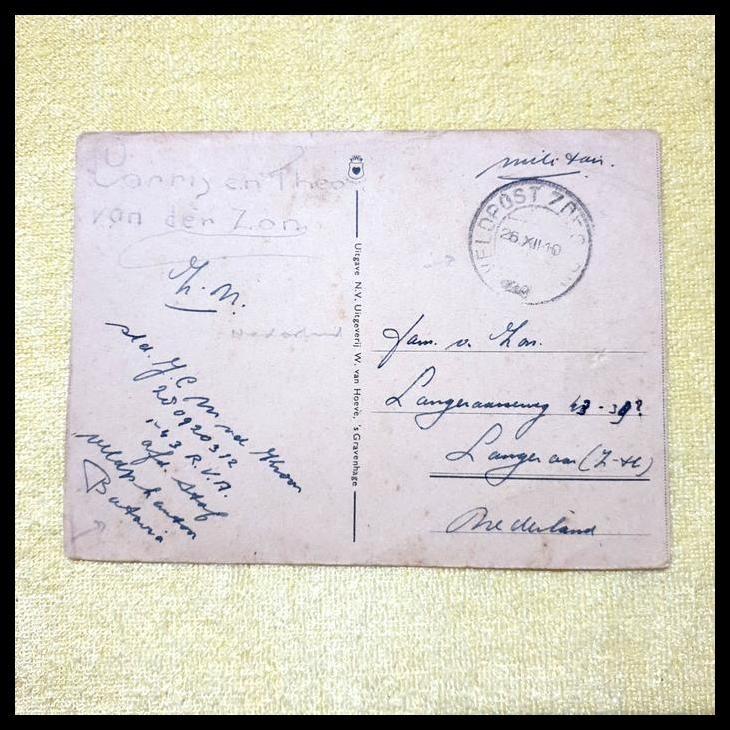 en Theo
van der Zon
Z.N.
Nederland
sld. J.C.M. vd
280920312
1-43 R.V.A.
afd. staf
veldp. kantoor
Batavia
Uitgave N.V. Uitgeverij W. van Hoeve, 's Gravenhage
militair.
VELDPOST
26.XII.
Fam. v. Zon.
Langeraarseweg
Langeraar (Z-H)
Nederland